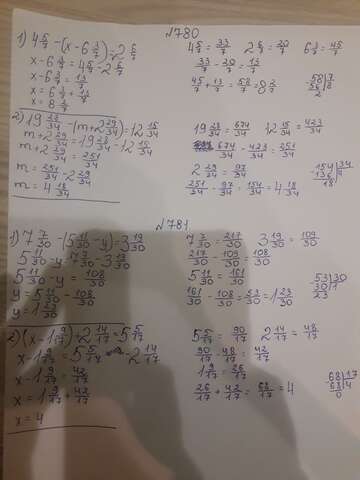 №780
1) 4 5/7 - (x - 6 3/7) = 2 6/7
x - 6 3/7 = 4 5/7 - 2 6/7
x - 6 3/7 = 13/7
x = 6 3/7 + 13/7
x = 8 2/7
4 5/7 = 33/7   2 6/7 = 20/7   6 3/7 = 45/7
33/7 - 20/7 = 13/7
45/7 + 13/7 = 58/7 = 8 2/7
58 7
56 8
2
2) 19 28/34 - (m + 2 29/34) = 12 15/34
m + 2 29/34 = 19 28/34 - 12 15/34
m + 2 29/34 = 251/34
m = 251/34 - 2 29/34
m = 4 18/34
19 28/34 = 674/34   12 15/34 = 423/34
674/34 - 423/34 = 251/34
2 29/34 = 97/34
251/34 - 97/34 = 154/34 = 4 18/34
154 34
136 4
18
№781
1) 7 7/30 - (5 11/30 - y) = 3 19/30
5 11/30 - y = 7 7/30 - 3 19/30
5 11/30 - y = 108/30
y = 5 11/30 - 108/30
y = 1 23/30
7 7/30 = 217/30   3 19/30 = 109/30
217/30 - 109/30 = 108/30
5 11/30 = 161/30
161/30 - 108/30 = 53/30 = 1 23/30
53 30
30 1
23
2) (x - 1 9/17) + 2 14/17 = 5 5/17
x - 1 9/17 = 5 5/17 - 2 14/17
x - 1 9/17 = 42/17
x = 1 9/17 + 42/17
x = 4
5 5/17 = 90/17   2 14/17 = 48/17
90/17 - 48/17 = 42/17
1 9/17 = 26/17
26/17 + 42/17 = 68/17 = 4
68 17
68 4
0